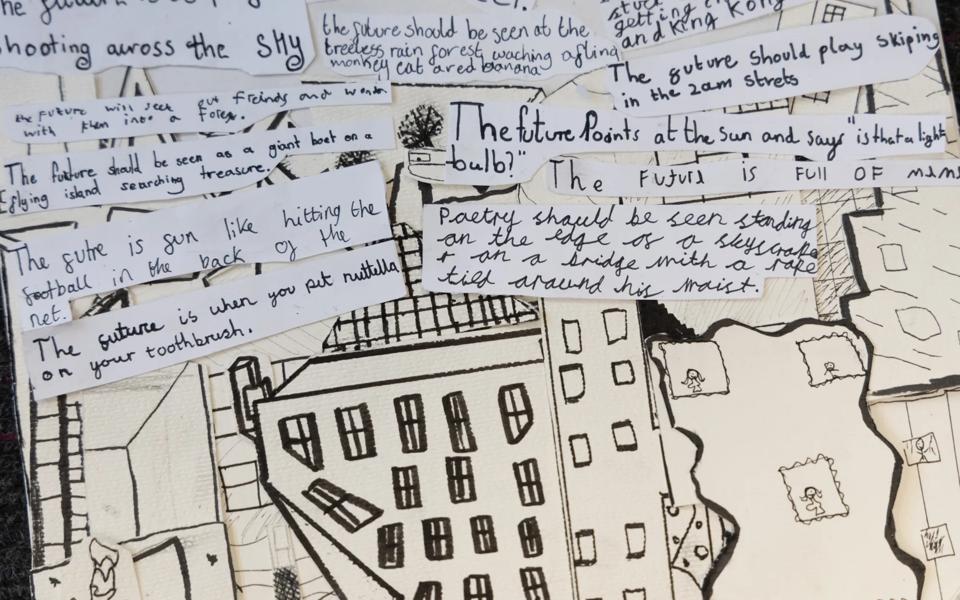 the future
shooting across the SKY
the future should be seen at the
treeless rain forest waching a fling
monkey cat a red banana
getting
and King Kong
The future Should play Skiping
in the 2am strets
the future will seek out freinds and
with them into a forest.
The future Points at the Sun and says "is that a light
bulb?"
The future should be seen as a giant boat on a
flying island searching treasure.
The Future is Full OF
The futre is fun like hitting the
football in the back of the
net.
Poetry should be seen standing
on the edge of a skyscrape
r on a bridge with a rope
tild around his waist.
The future is when you put nuttella
on your toothbrush.